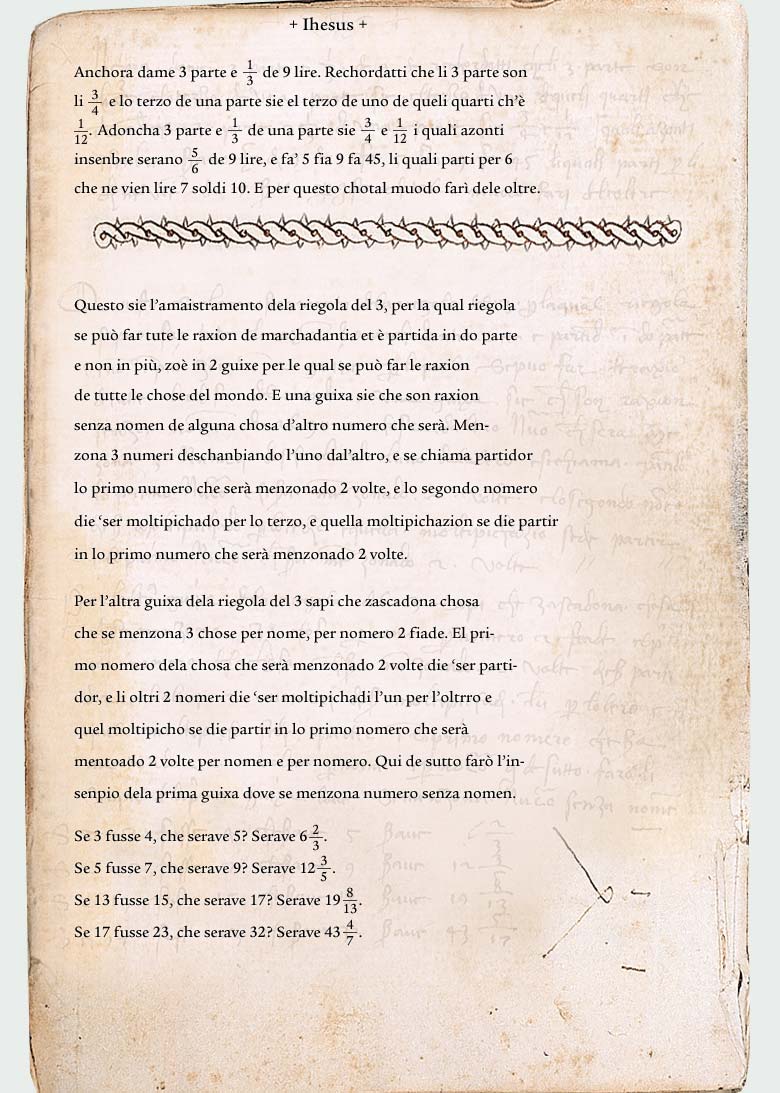 + Ihesus +
Anchora dame 3 parte e 1/3 de 9 lire. Rechordatti che li 3 parte son
li 3/4 e lo terzo de una parte sie el terzo de uno de queli quarti ch’è
1/12. Adoncha 3 parte e 1/3 de una parte sie 3/4 e 1/12 i quali azonti
insenbre serano 5/6 de 9 lire, e fa’ 5 fia 9 fa 45, li quali parti per 6
che ne vien lire 7 soldi 10. E per questo chotal muodo farì dele oltre.
Questo sie l’amaistramento dela riegola del 3, per la qual riegola
se può far tute le raxion de marchadantia et è partida in do parte
e non in più, zoè in 2 guixe per le qual se può far le raxion
de tutte le chose del mondo. E una guixa sie che son raxion
senza nomen de alguna chosa d’altro numero che serà. Men-
zona 3 numeri deschanbiando l’uno dal’altro, e se chiama partidor
lo primo numero che serà menzonado 2 volte, e lo segondo nomero
die ‘ser moltipichado per lo terzo, e quella moltipichazion se die partir
in lo primo numero che serà menzonado 2 volte.
Per l’altra guixa dela riegola del 3 sapi che zascadona chosa
che se menzona 3 chose per nome, per nomero 2 fiade. El pri-
mo nomero dela chosa che serà menzonado 2 volte die ‘ser parti-
dor, e li oltri 2 nomeri die ‘ser moltipichadi l’un per l’oltrro e
quel moltipicho se die partir in lo primo nomero che serà
mentoado 2 volte per nomen e per nomero. Qui de sutto farò l’in-
senpio dela prima guixa dove se menzona numero senza nomen.
Se 3 fusse 4, che serave 5? Serave 6 2/3.
Se 5 fusse 7, che serave 9? Serave 12 3/5.
Se 13 fusse 15, che serave 17? Serave 19 8/13.
Se 17 fusse 23, che serave 32? Serave 43 4/7.